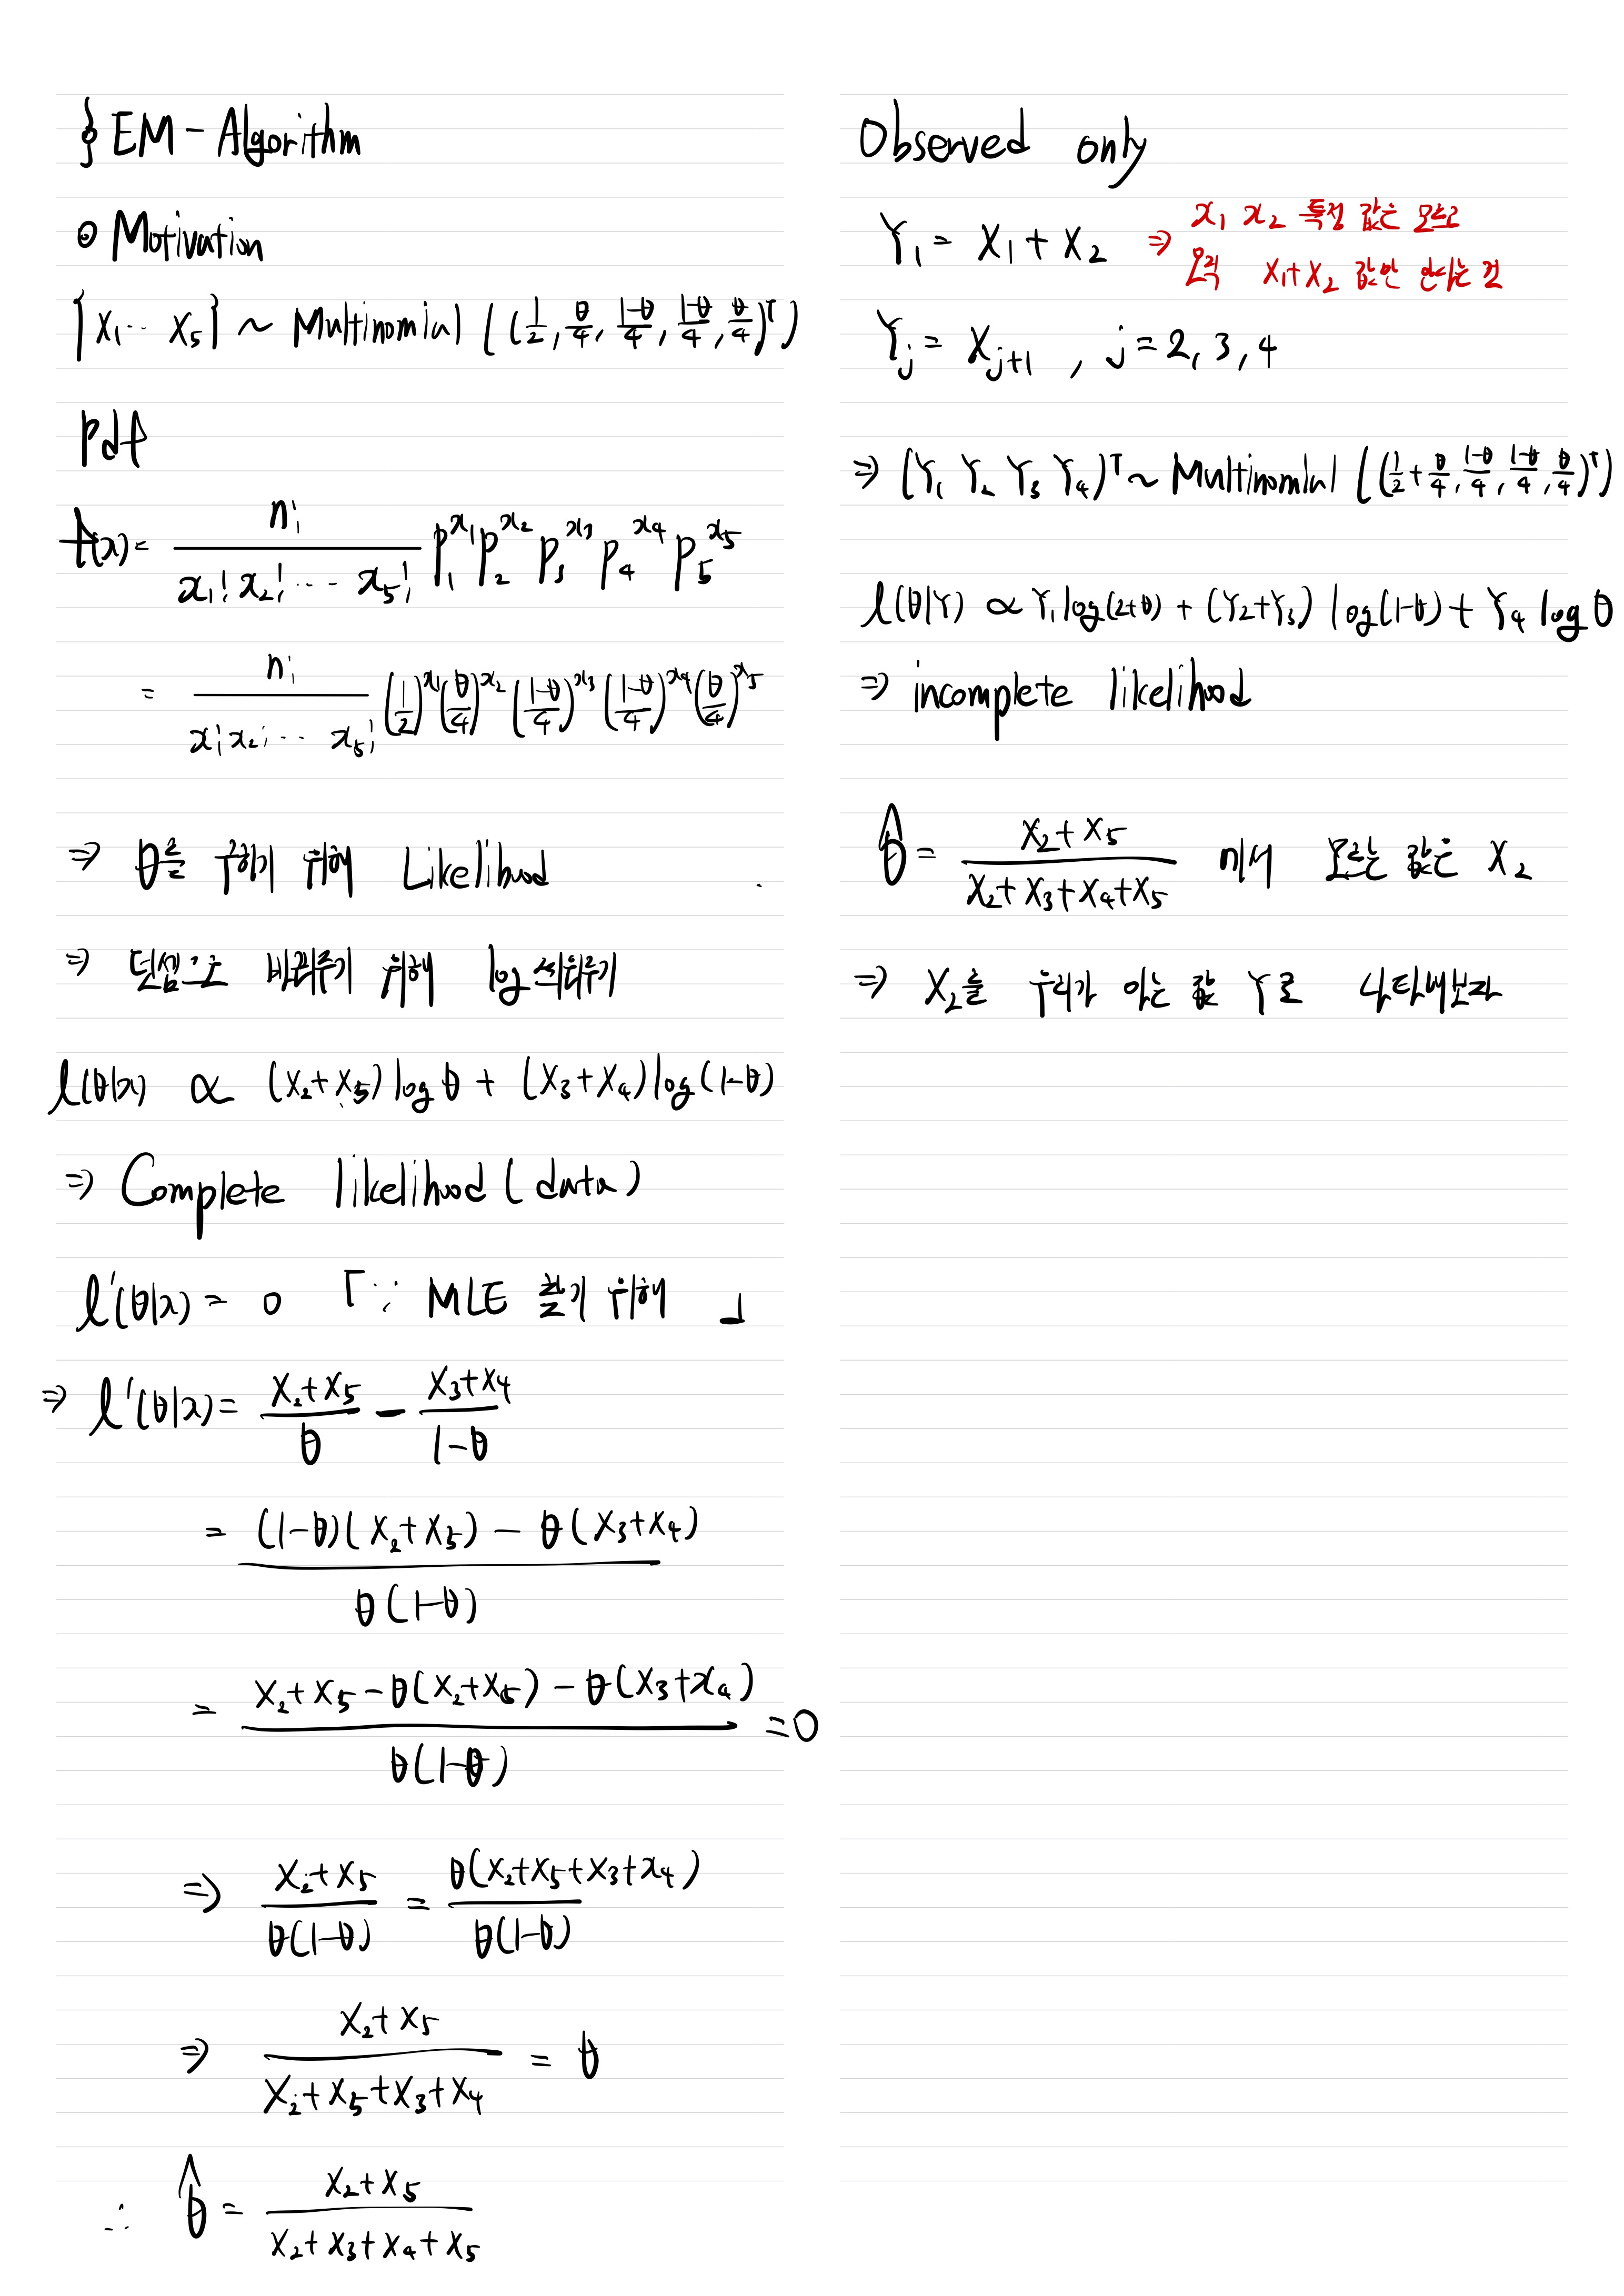 § EM - Algorithm
o Motivation
{X₁ ⋯ X₅} ~ Multinomial ((1/2, θ/4, (1-θ)/4, (1-θ)/4, θ/4)ᵀ)
pdf
f(x) = n! / (x₁! x₂! ⋯ x₅!) p₁^x₁ p₂^x₂ p₃^x₃ p₄^x₄ p₅^x₅
= n! / (x₁! x₂! ⋯ x₅!) (1/2)^x₁ (θ/4)^x₂ ((1-θ)/4)^x₃ ((1-θ)/4)^x₄ (θ/4)^x₅
⇒ θ를 구하기 위해 Likelihood
⇒ 덧셈으로 바꿔주기 위해 log 씌워주기
l(θ|x) ∝ (X₂+X₅) log θ + (X₃+X₄) log(1-θ)
⇒ Complete likelihood (data)
l'(θ|x) = 0 「∵ MLE 찾기 위해 」
⇒ l'(θ|x) = (X₂+X₅)/θ - (X₃+X₄)/(1-θ)
= ((1-θ)(X₂+X₅) - θ(X₃+X₄)) / (θ(1-θ))
= (X₂+X₅-θ(X₂+X₅) - θ(X₃+x₄)) / (θ(1-θ)) = 0
⇒ (X₂+X₅)/(θ(1-θ)) = θ(X₂+X₅+X₃+x₄)/(θ(1-θ))
⇒ (X₂+X₅)/(X₂+X₅+X₃+X₄) = θ
∴ θ̂ = (X₂+X₅)/(X₂+X₃+X₄+X₅)
Observed only
Y₁ = X₁ + X₂ ⇒ x₁ x₂ 특정 값은 모르고
오직 X₁+X₂ 값만 안다는 것
Yⱼ = Xⱼ₊₁ , j = 2, 3, 4
⇒ (Y₁ Y₂ Y₃ Y₄)ᵀ ~ Multinomial ((1/2 + θ/4, (1-θ)/4, (1-θ)/4, θ/4)ᵀ)
l(θ|Y) ∝ Y₁ log(2+θ) + (Y₂+Y₃) log(1-θ) + Y₄ log θ
⇒ incomplete likelihood
θ̂ = (X₂+X₅)/(X₂+X₃+X₄+X₅) 에서 모르는 값은 X₂
⇒ X₂를 우리가 아는 값 Y로 나타내보자